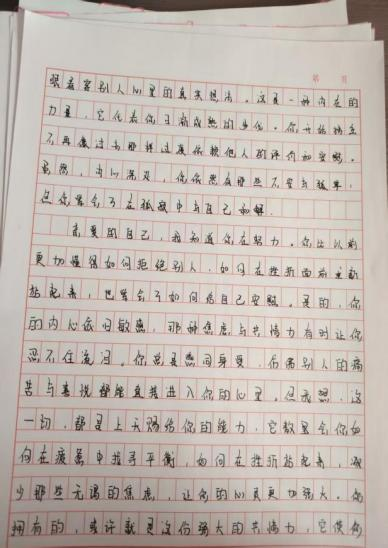 第 页
眼看穿别人心里的真实想法。这是一种内在的
力量，它代表你日渐成熟的步伐。你开始独立
不再像过去那样过度依赖他人的评价和安慰。
虽然，内心深处，你依然有那些不安与孤单，
但你学会了在孤寂中与自己和解。
亲爱的自己，我知道你在努力。你比以前
更加懂得如何拒绝别人，如何在挫折面前重新
站起来，也学会了如何给自己安慰。是的，你
的内心依旧敏感，那种焦虑与共情力有时让你
忍不住流泪。你总是感同身受，仿佛别人的痛
苦与喜悦都能直接进入你的心里。但我想，这
一切，都是上天赐给你的能力，它教会你如
何在疲惫中找寻平衡，如何在挫折站起来，减
少那些无谓的焦虑，让你的心灵更加强大。你
拥有的，或许就是这份强大的共情力，它使你